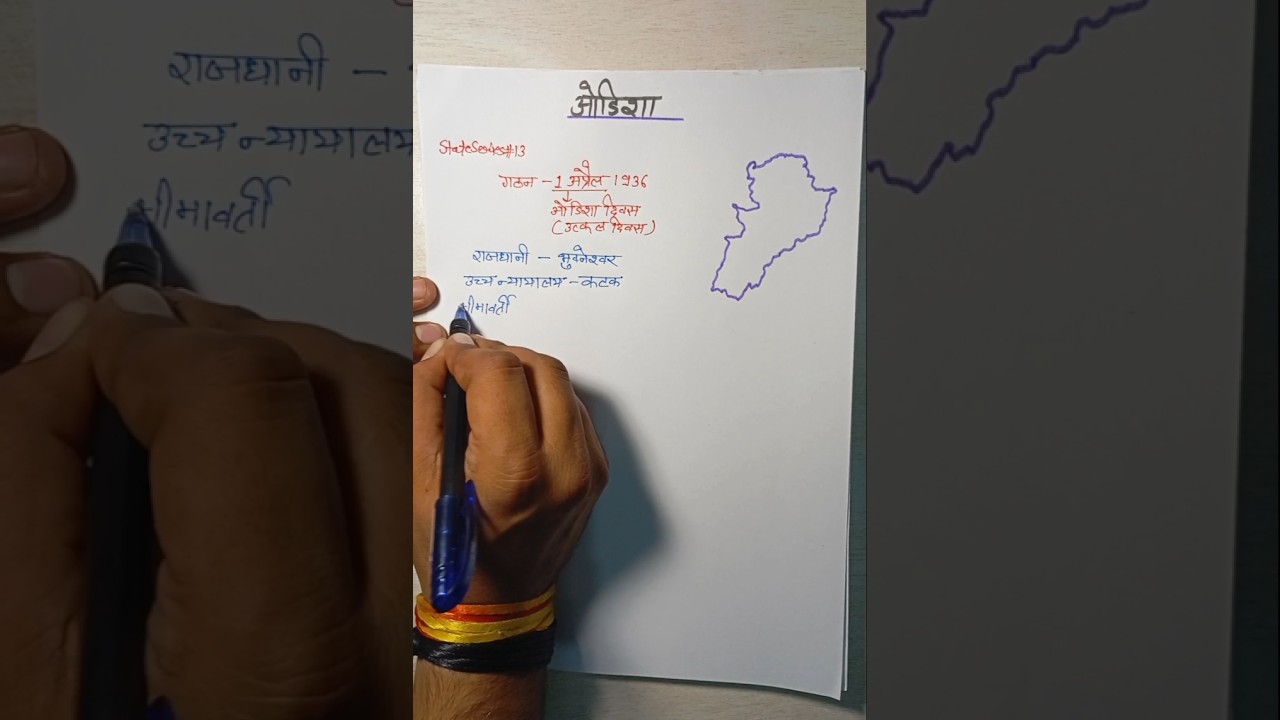 ओडिशा
StateSeries#13
गठन - 1 अप्रैल 1936
ओडिशा दिवस
(उत्कल दिवस)
राजधानी - भुवनेश्वर
उच्च न्यायालय - कटक
सीमावर्ती